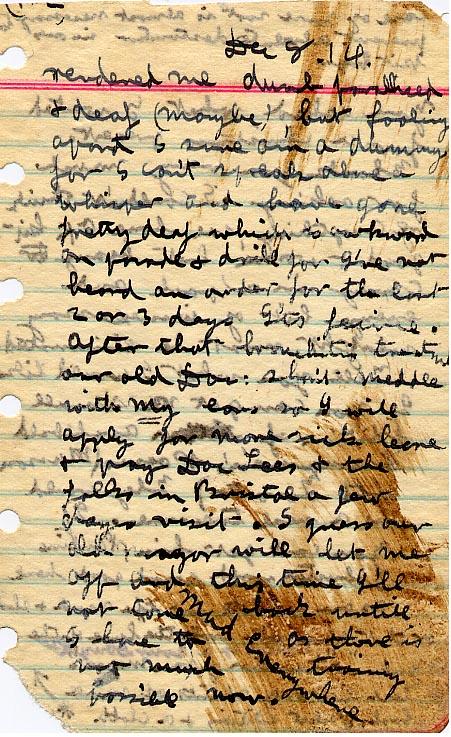 Dec 8. 14.
rendered me dumb
& deaf (maybe) but fooling
apart I sure am a dummy
for I can't speak above a
whisper and have gone
pretty deaf which is awkward
on parade & drill for I've not
heard an order for the last
2 or 3 days. It's fierce.
After that bronchitis
our old Doc: shan't meddle
with my ears so I will
apply for more sick leave
& pay Doc Lees & the
folks in Bristol a few
days visit. I guess our
old major will let me
off and this time I'll
not come back until
I have to as there is
not much training
possible now.
Mud Everywhere